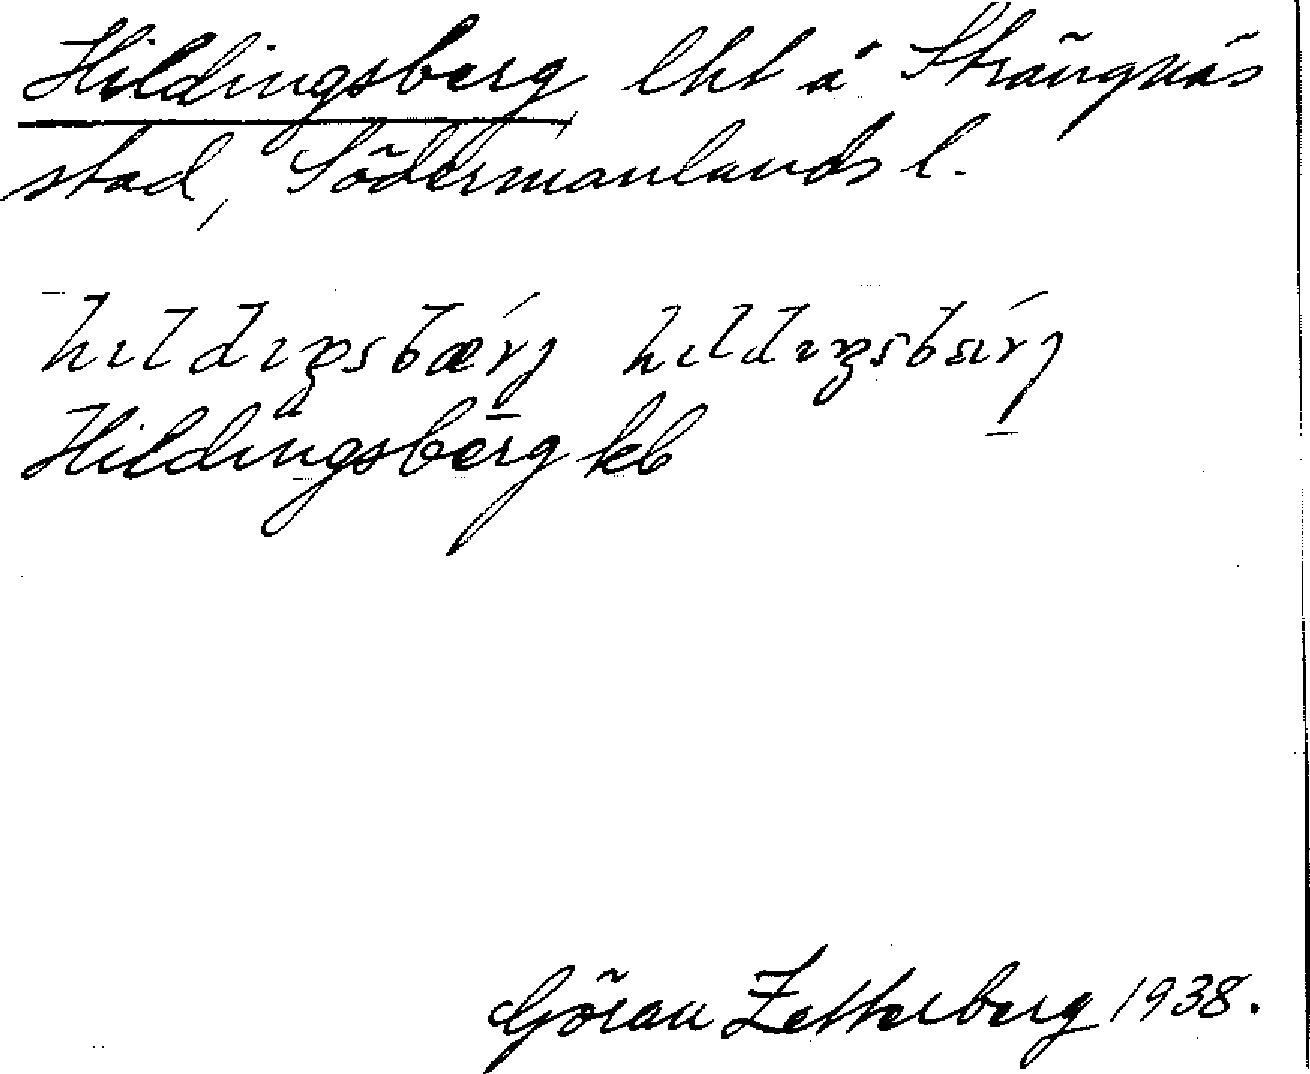 Hildingsberg lht å Strängnäs
stad, Södermanlands l.
hıldıŋsbærj hıldıŋsbærj
Hildingsberg kb
Göran Zetterberg 1938.